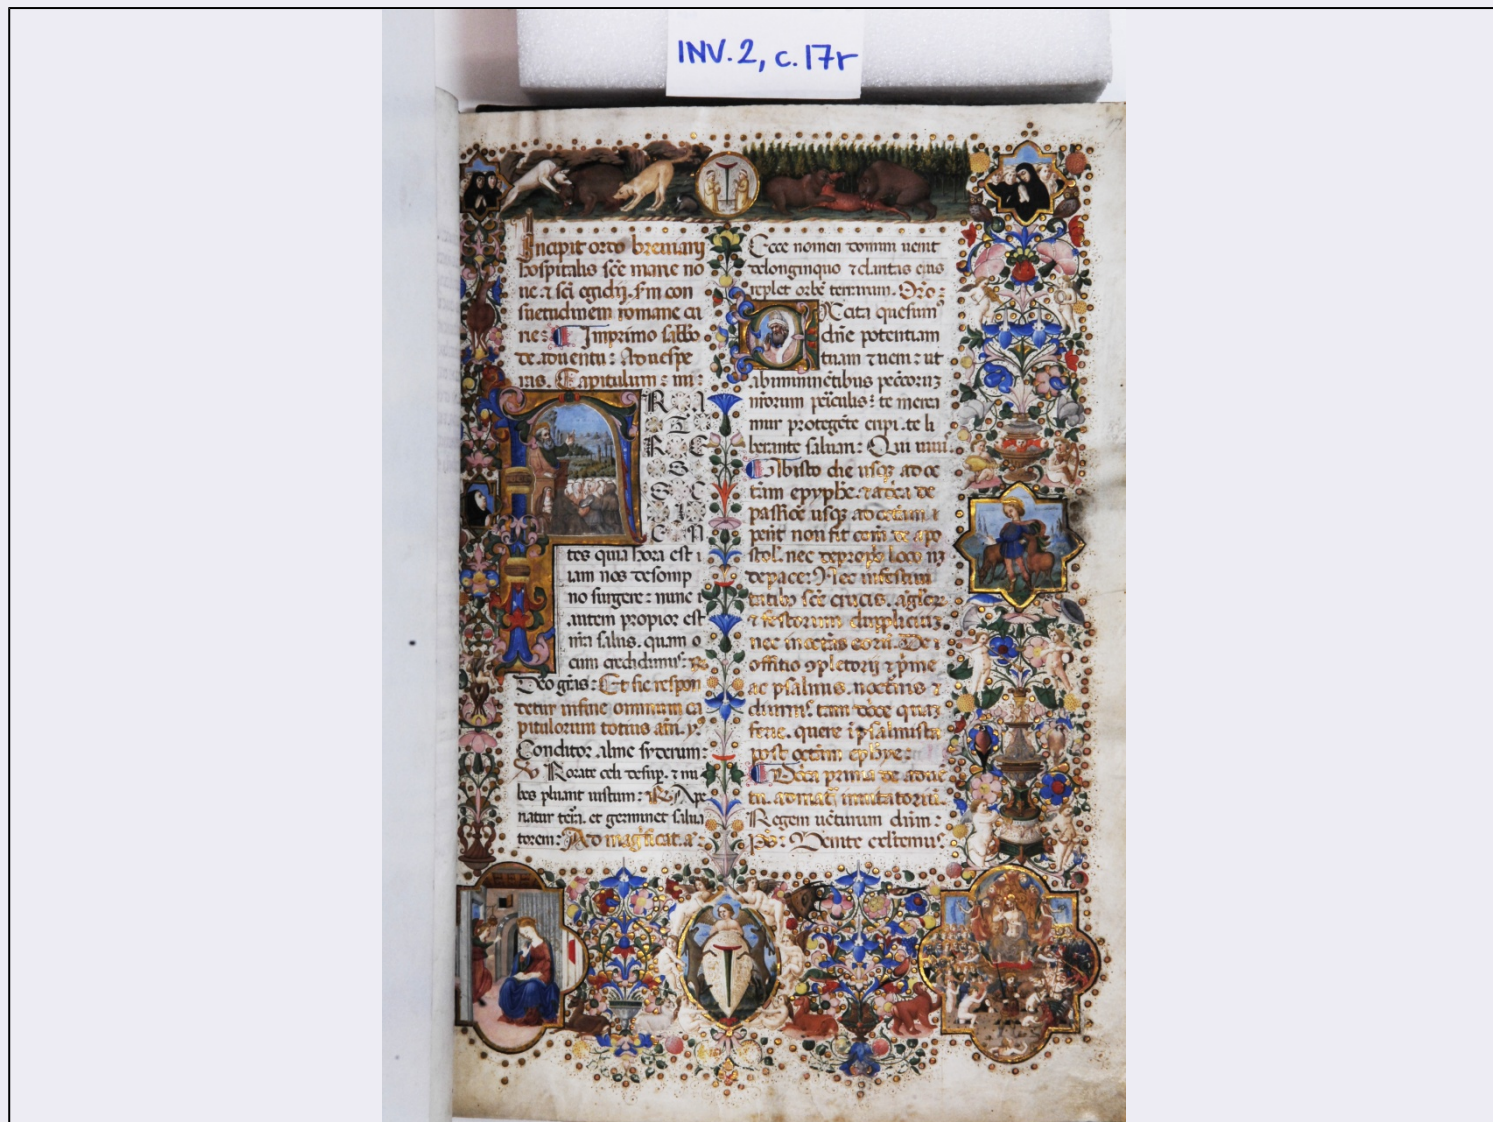 INV. 2, c. 17r
Incipit ordo breviarij
hospitalis sce marie no
ne. ⁊ sci egidij. sm con
suetudinem romane cu
rie: Imprimo sabbo
de adventu: Ad vespe
ras. Capitulum:
F R A
T
R E
S
S C
I
E N
tes quia hora est i
iam nos de somp
no surgere: nunc
autem propior est
nra salus. quam
cum credidimus:
Deo gras: Et sic respon
detur in fine omnium ca
pitulorum totius
Conditor alme syderum:
Rorate celi desup. ⁊ nu
bes pluant iustum: Ape
riatur terra. et germinet salua
torem: Ad magnificat. a
Ecce nomen domini uenit
de longinquo ⁊ claritas eius
replet orbe terrarum. Oro:
Excita quesum
dne potentiam
tuam ⁊ ueni: ut
ab imminetibus peccorum
nrorum periculis: te merea
mur protegete eripi. te li
berante saluari: Qui uiui
usq ad oc
tam epyphie.
usq ad octam
non fit de apo
stol. nec
de pace: Nec infestiui
tatibus sce crucis.
⁊ festorum duplicium
nec De
offitiis
ac psalmis. nocturnis ⁊
diurnis. tam
ferie. quere psalmista
post octam
prima de adue
tu. ad mat inuitatorium
Regem uenturum dnm:
Ps: Venite exultemus